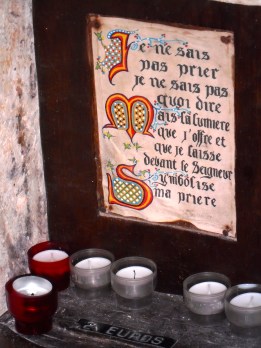 Je ne sais
pas prier
je ne sais pas
quoi dire
Mais la Lumiere
que j'offre et
que je laisse
devant le Seigneur
Symbolise
ma priere
2 EUROS